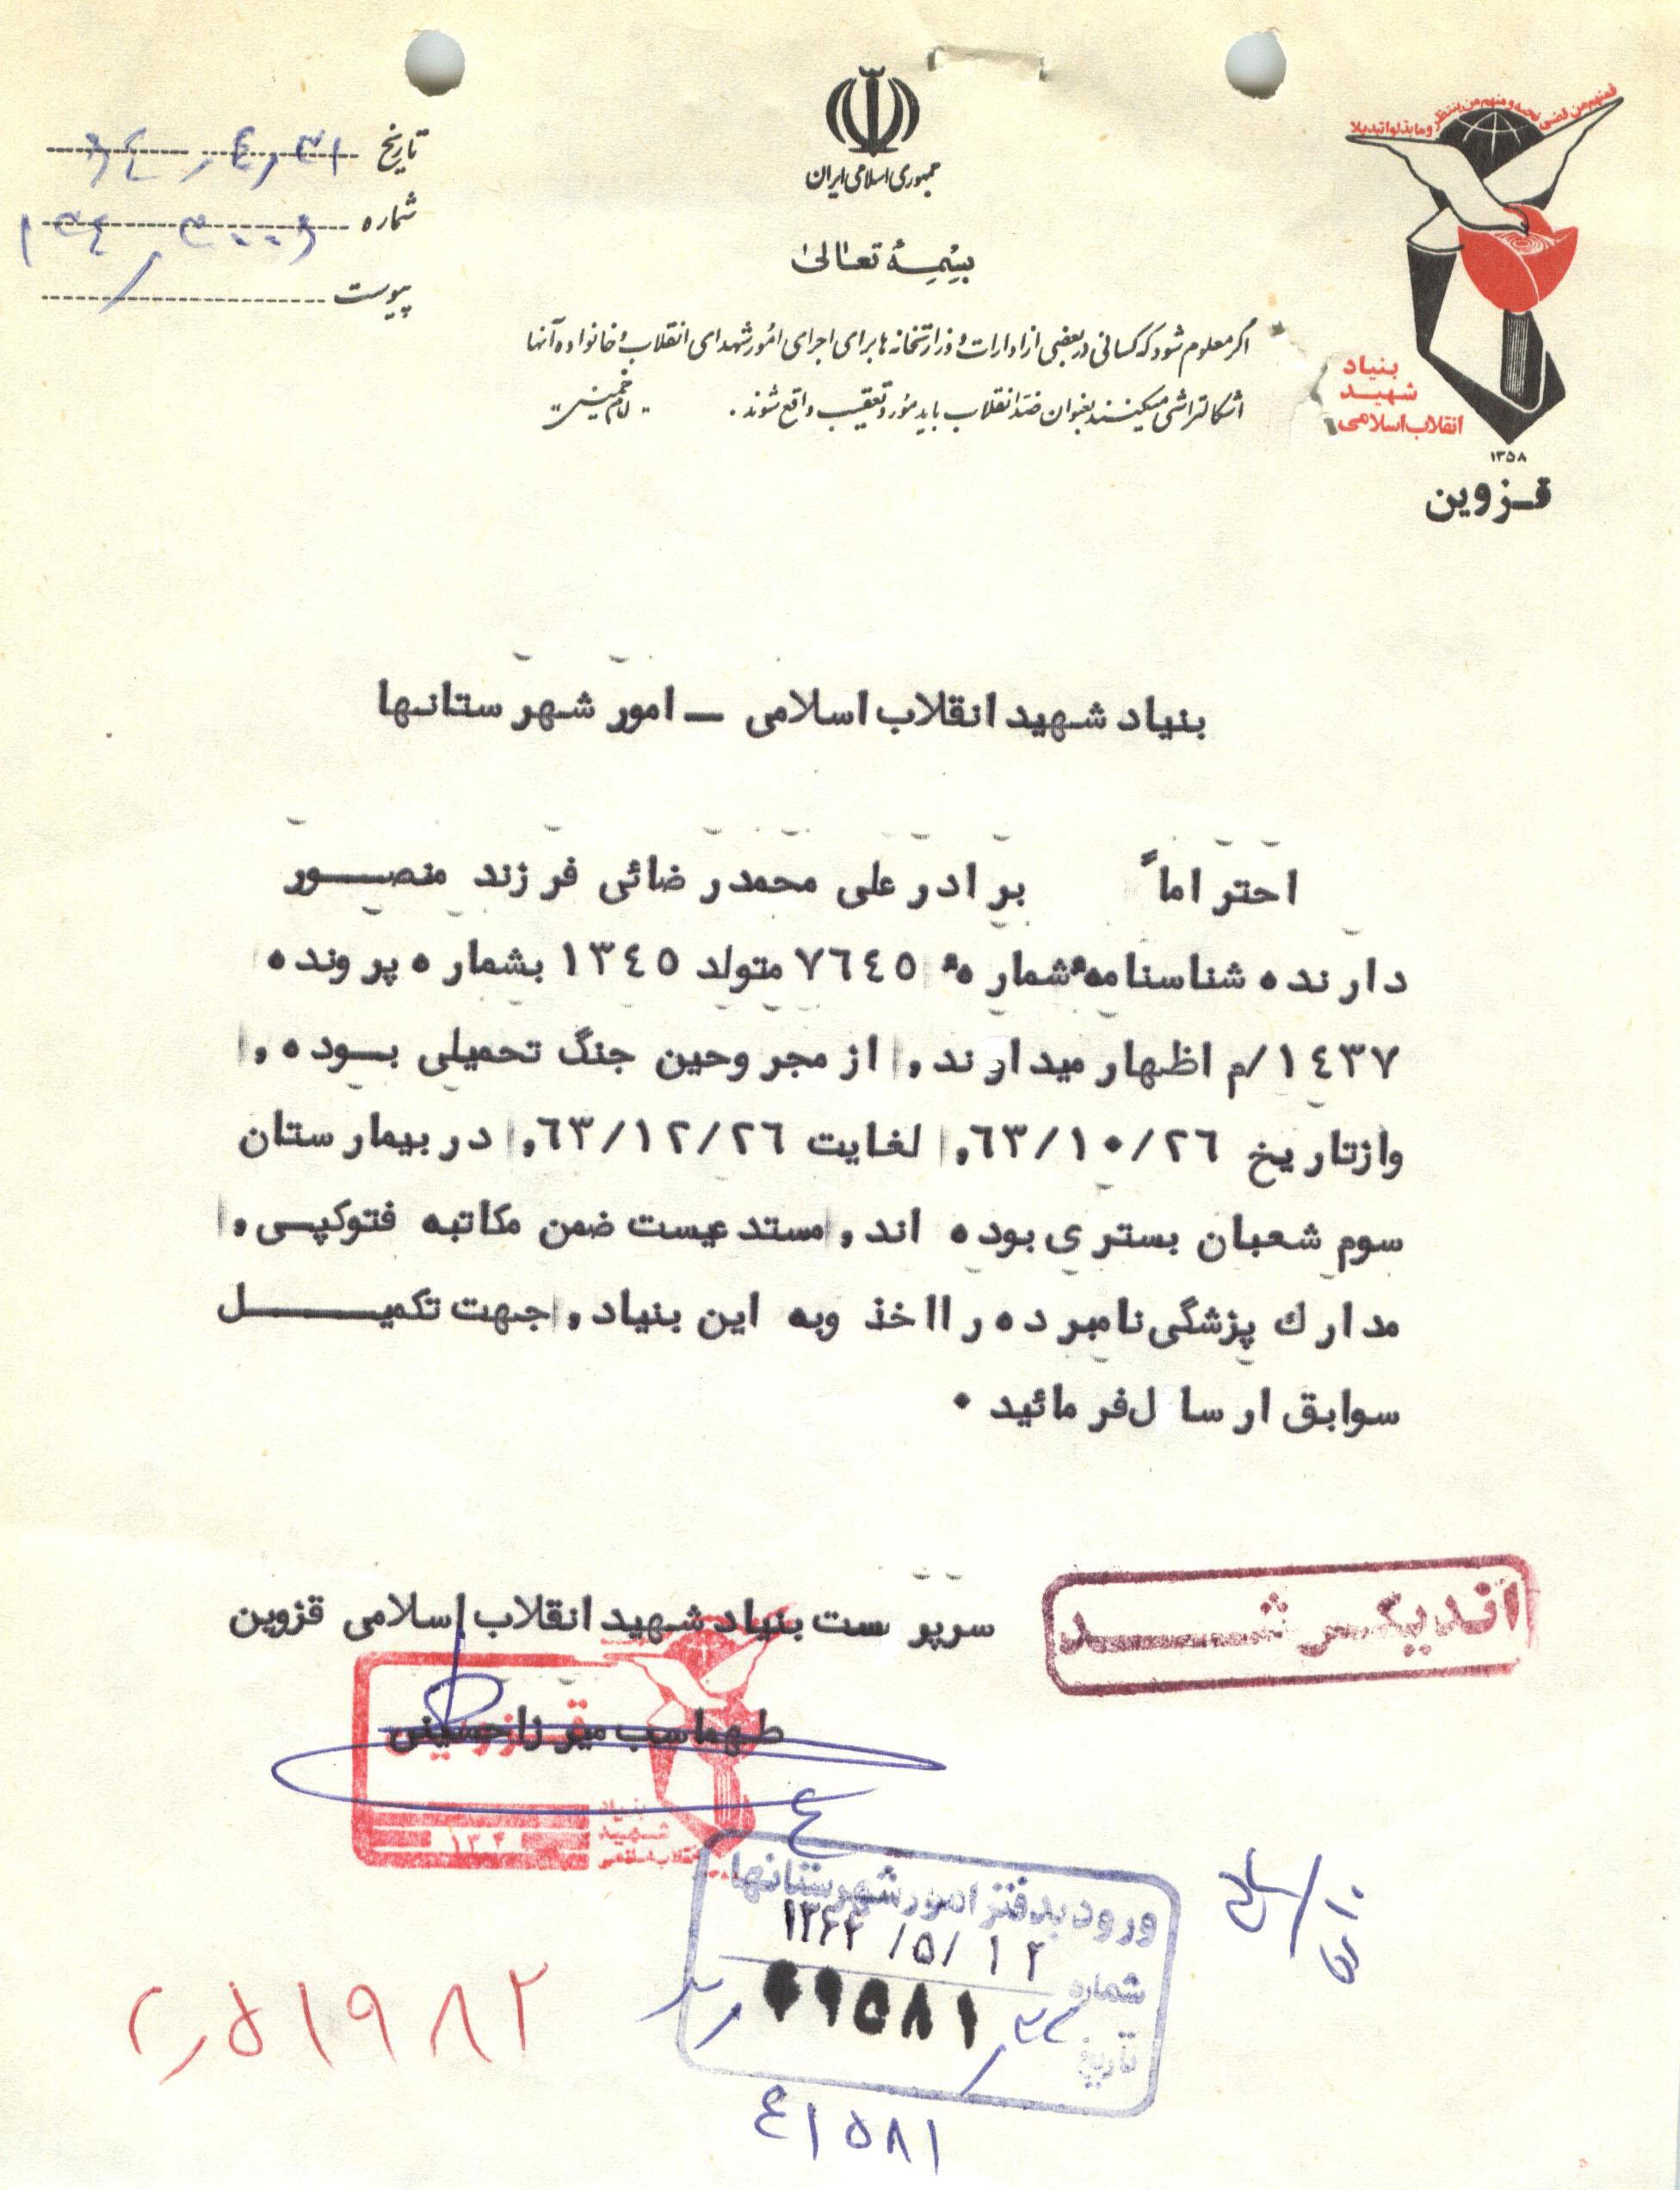 فمنهم من قضی نحبه و منهم من ینتظر و ما بدلوا تبدیلا
جمهوری اسلامی ایران
بسمه تعالی
تاریخ ۳۱ / ۴ / ۶۴
شماره
پیوست /
اگر معلوم شود که کسانی در بعضی از ادارات و وزارتخانه ها برای اجرای امور شهدای انقلاب و خانواده آنها
اشکالتراشی میکنند بعنوان ضد انقلاب باید مورد تعقیب واقع شوند . "امام خمینی"
بنیاد
شهید
انقلاب اسلامی
۱۳۵۸
قزوین
بنیاد شهید انقلاب اسلامی ــ امور شهرستانها
احتراماً برادر علی محمدرضائی فرزند منصــور
دارنده شناسنامه شماره ۷۶۴۵ متولد ۱۳۴۵ بشماره پرونده
۱۴۳۷/م اظهار میدارند، از مجروحین جنگ تحمیلی بــوده،
وازتاریخ ۶۳/۱۰/۲۶، لغایت ۶۳/۱۲/۲۶، در بیمارستان
سوم شعبان بستری بوده اند، مستدعیست ضمن مکاتبه فتوکپــی،
مدارك پزشگی نامبرده را اخذ وبه این بنیاد، جهت تکمیــــل
سوابق ارسا ل فرمائید .
اندیکس شــــد
سرپرست بنیاد شهید انقلاب اسلامی قزوین
طهماسب میرزاحسینی
قزوین
بنیاد
شهید
انقلاب اسلامی
ورود بدفتر امور شهرستانها
۱۳۶۴ /۵/ ۱۲
شماره
۶۹۵۸۱
تاریخ
۲٫۵۱۹۸۲
۴۱۵۸۱